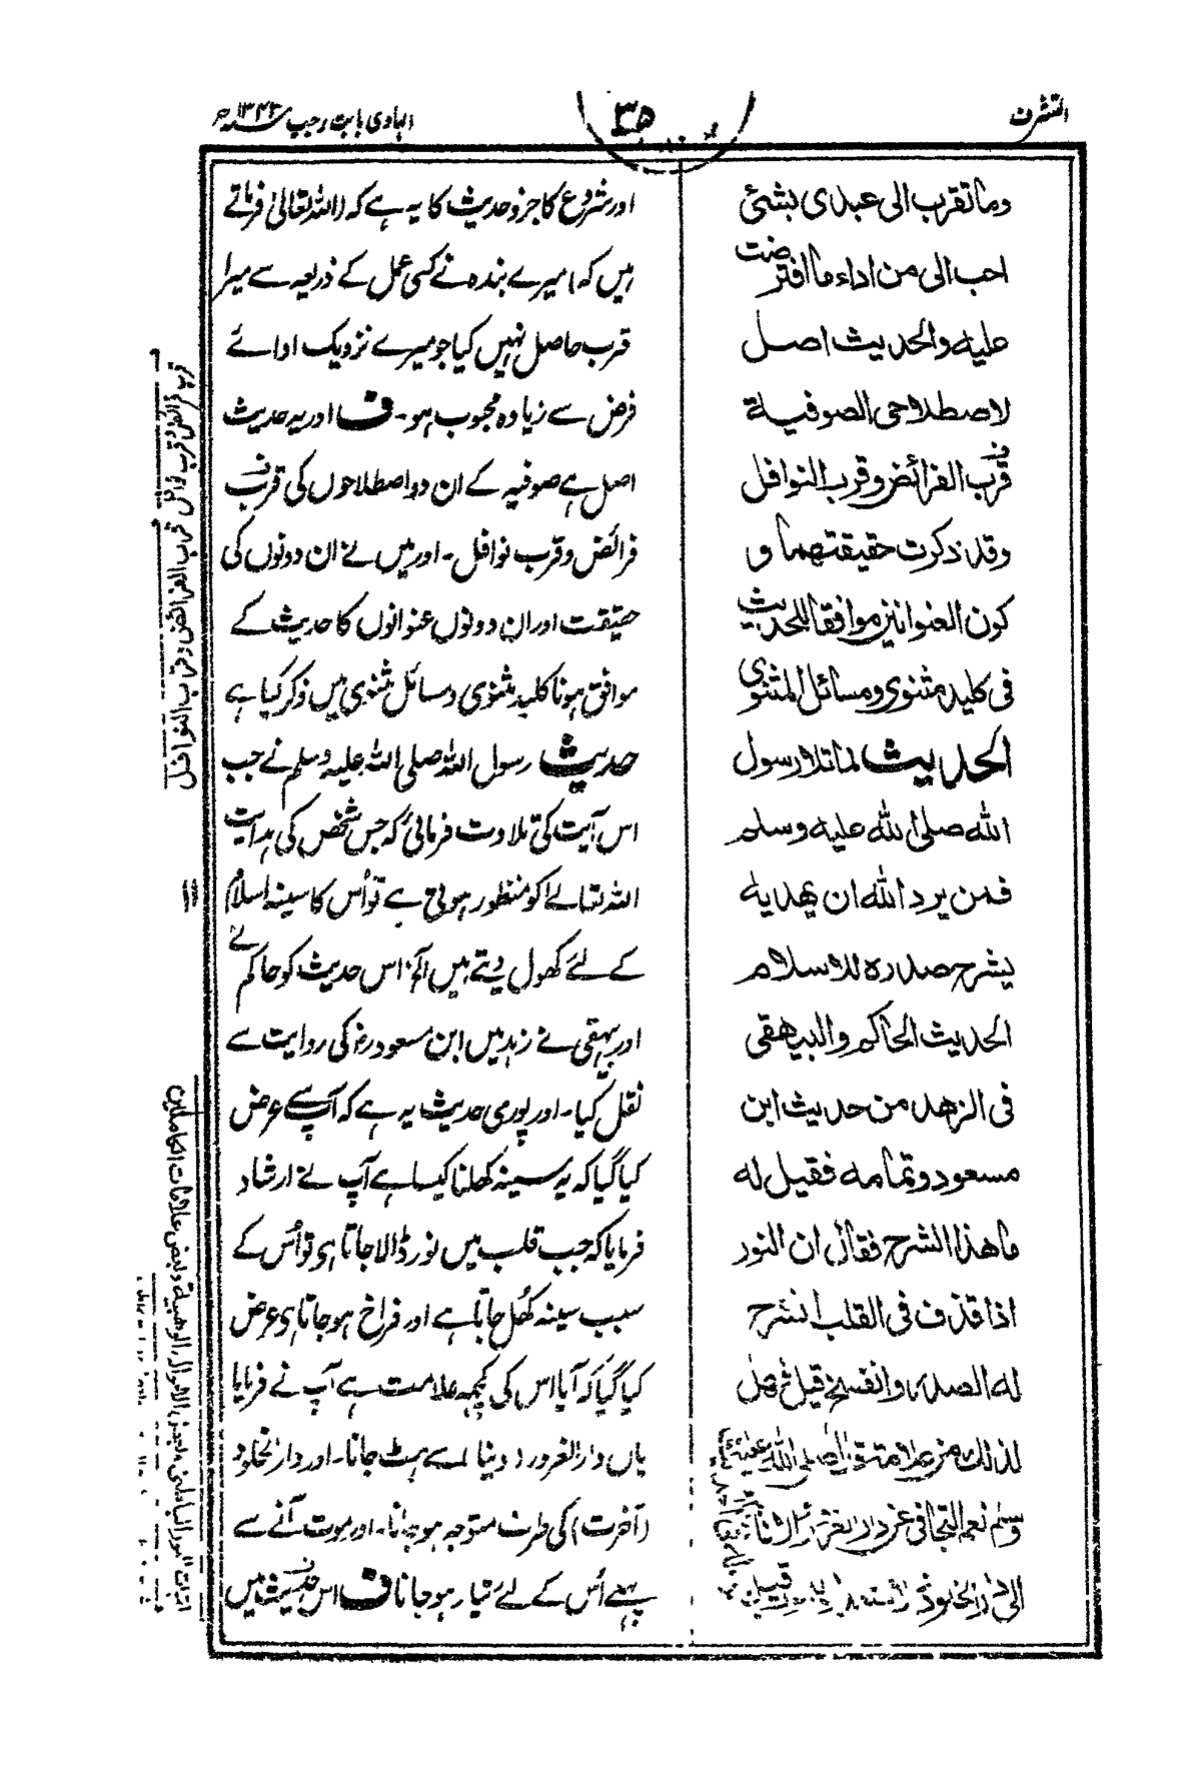 التشرف
۳۵
الہادی بابت رجب ۱۳۴۲ھ
وما تقرب الی عبدی بشئ
احب الی من اداء ما افترضت
علیه والحدیث اصل
لاصطلاحی الصوفیة
قرب الفرائض وقرب النوافل
وقد ذکرت حقیقتهما و
کون العنوانین موافقا للحدیث
فی کلید مثنوی ومسائل المثنوی
الحدیث لما تلا رسول
الله صلی الله علیه وسلم
فمن یرد الله ان یهدیه
یشرح صدره للاسلام
الحدیث الحاکم والبیهقی
فی الزهد من حدیث ابن
مسعود وتمامه فقیل له
ما هذا الشرح فقال ان النور
اذا قذف فی القلب انشرح
له الصدر وانفسخ قیل فهل
لذلک من علامة قال صلی الله علیه
وسلم نعم التجافی عن دار الغرور والانابة
الی دار الخلود
اور شروع کا جزو حدیث کا یہ ہے کہ (اللہ تعالیٰ فرماتے
ہیں کہ) میرے بندہ نے کسی عمل کے ذریعہ سے میرا
قرب حاصل نہیں کیا جو میرے نزدیک ادائے
فرض سے زیادہ محبوب ہو۔ ف اور یہ حدیث
اصل ہے صوفیہ کے ان دو اصطلاحوں کی قرب
فرائض وقرب نوافل۔ اور میں نے ان دونوں کی
حقیقت اور ان دونوں عنوانوں کا حدیث کے
موافق ہونا کلید مثنوی ومسائل مثنوی میں ذکر کیا ہے
حدیث رسول اللہ صلی اللہ علیہ وسلم نے جب
اس آیت کی تلاوت فرمائی کہ جس شخص کی ہدایت
اللہ تعالے کو منظور ہوتی ہے تو اُس کا سینہ اسلام
کے لئے کھول دیتے ہیں الخ اس حدیث کو حاکم نے
اور بیہقی نے زہد میں ابن مسعود رض کی روایت سے
نقل کیا۔ اور پوری حدیث یہ ہے کہ آپ سے عرض
کیا گیا کہ یہ سینہ کھلنا کیسا ہے آپ نے ارشاد
فرمایا کہ جب قلب میں نور ڈالا جاتا ہی تو اُس کے
سبب سینہ کُھل جاتا ہے اور فراخ ہو جاتا ہی عرض
کیا گیا کہ آیا اس کی کچھ علامت ہے آپ نے فرمایا
ہاں دار الغرور (دنیا) سے ہٹ جانا۔ اور دار الخلود
(آخرت) کی طرف متوجہ ہو جانا۔ اور موت آنے سے
پہلے اُس کے لئے تیار ہو جانا ف اس حدیث میں
قرب فرائض و قرب نوافل
قرب الفرائض وقرب النوافل
۱۱